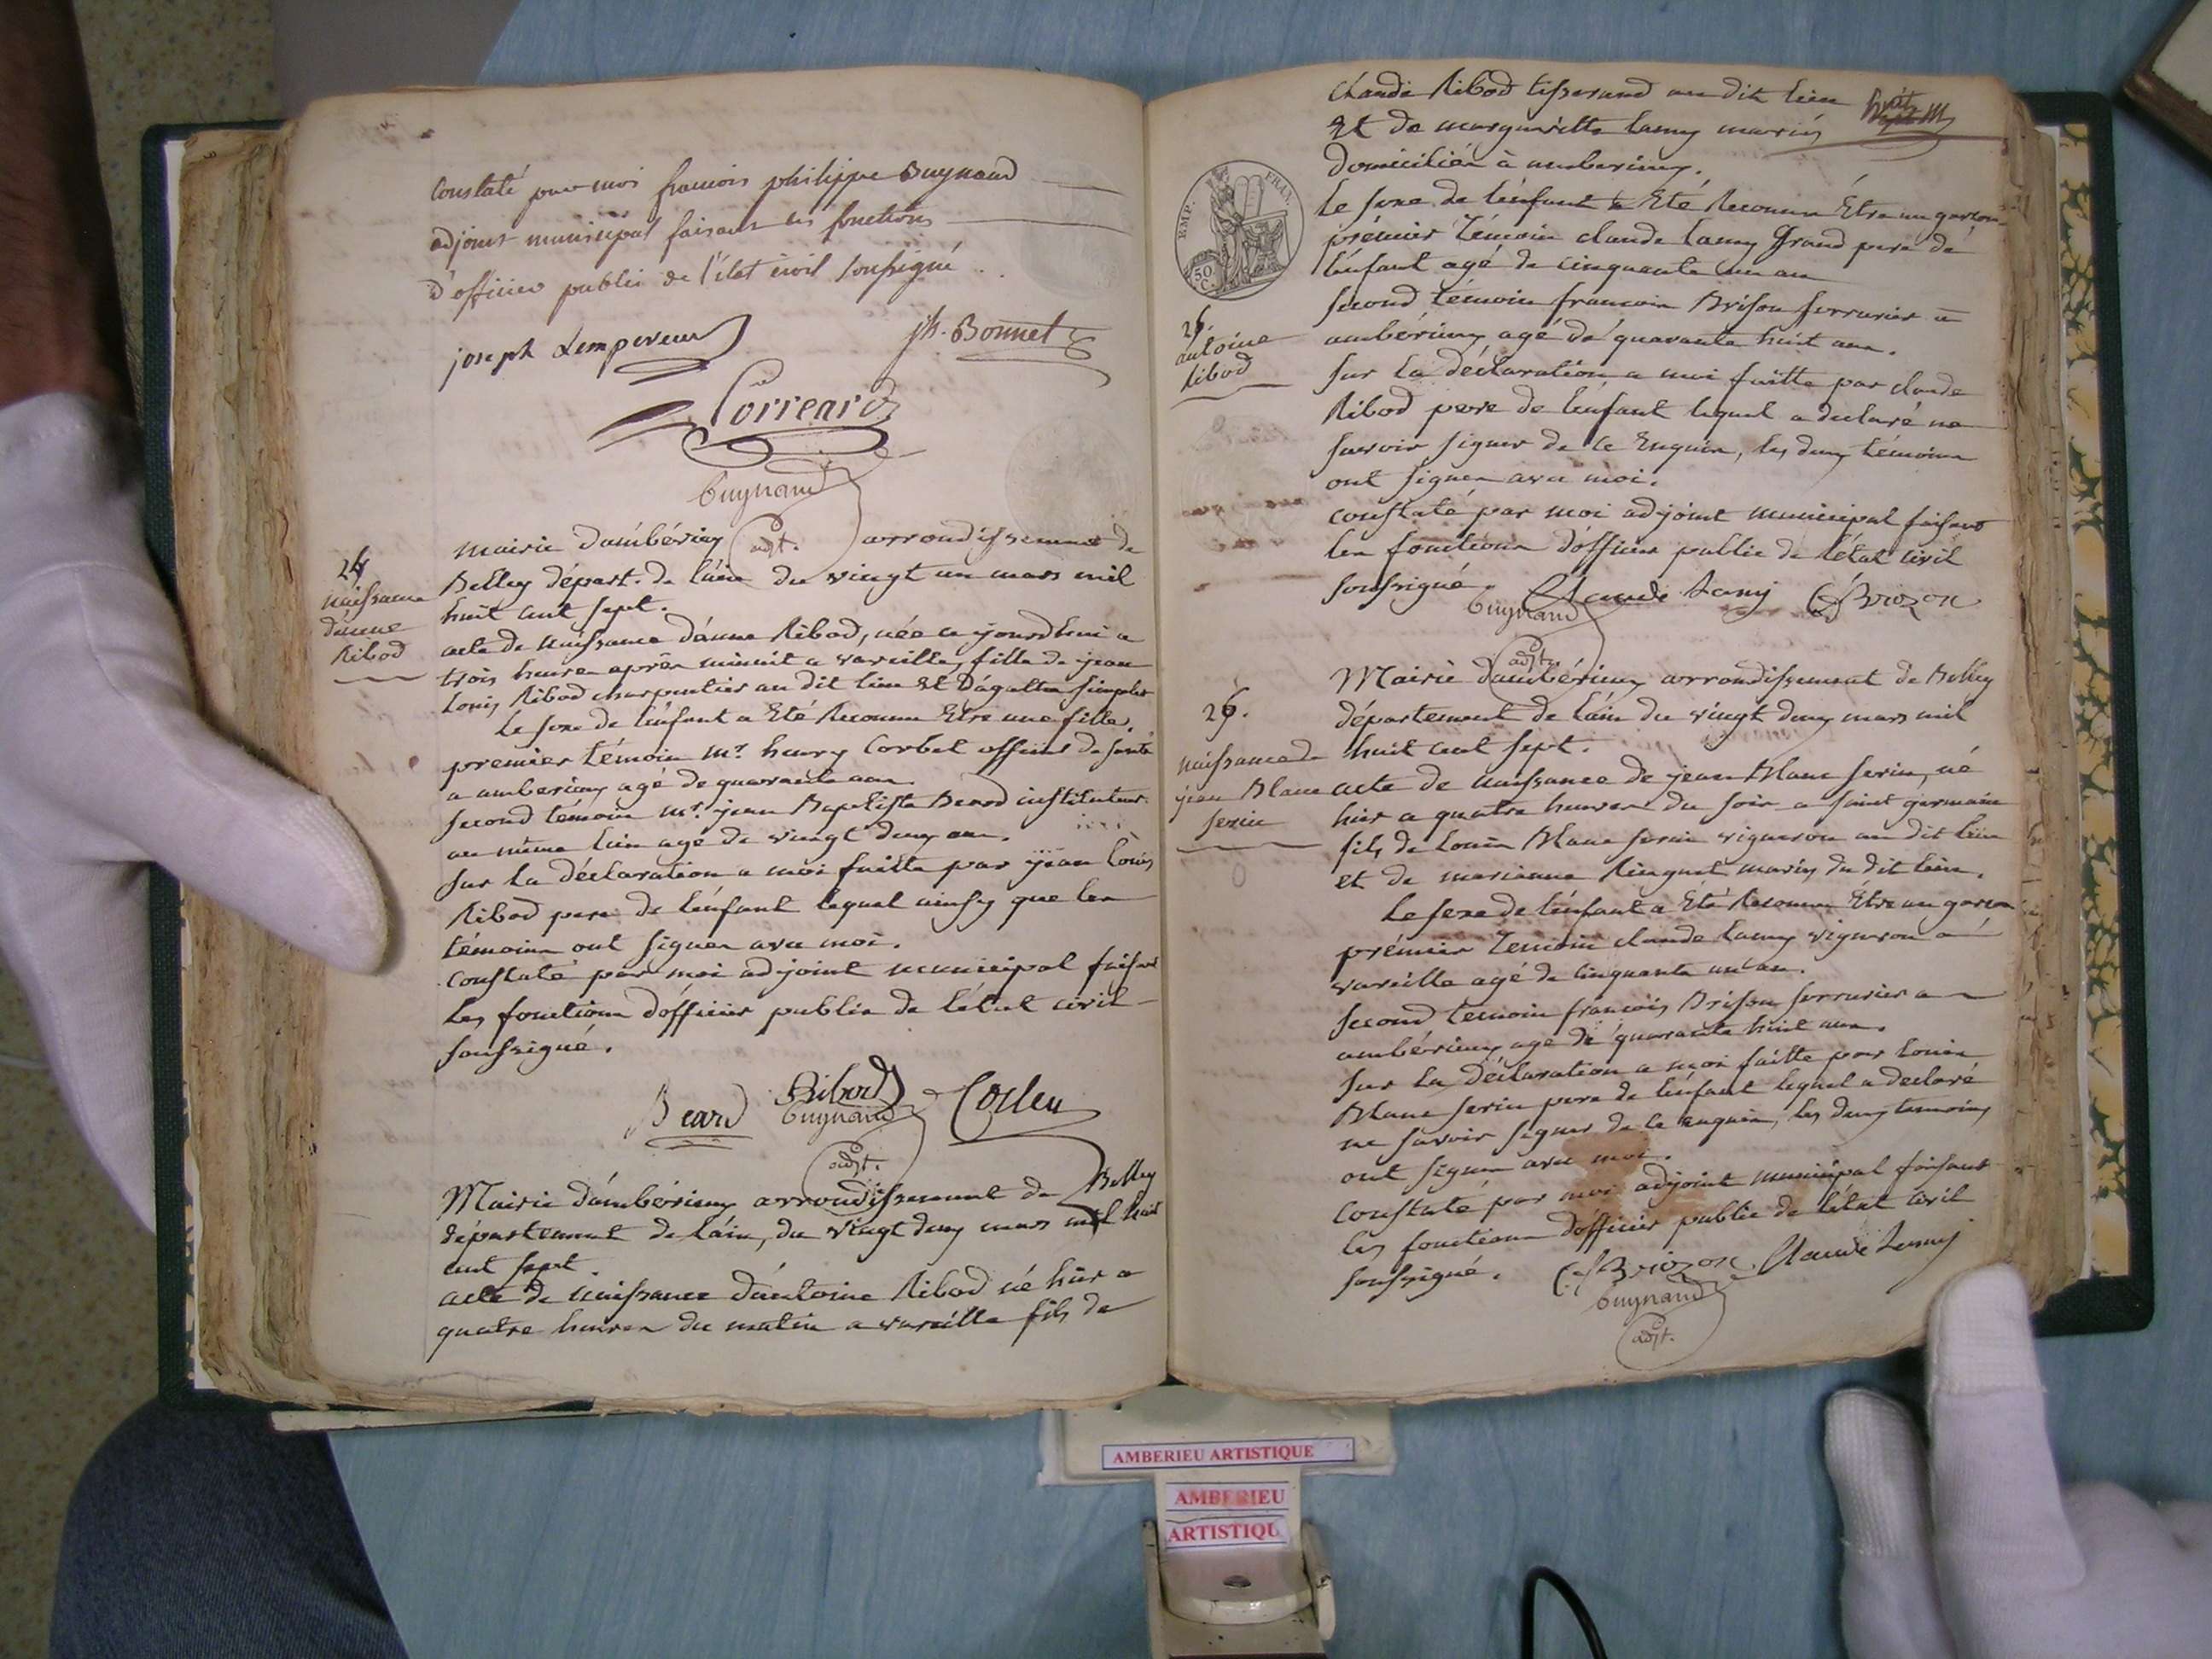 Constaté par moi francois philippe Buynand
adjoint municipal faisant les fonctions
d'officier public de l'état civil soussigné
joseph Lempereur
jh. Bonnet
Correard
Buynand
adjt.
24
naissance
d'anne
Ribod
Mairie d'ambérieux arrondissement de
Belley départ. de l'ain du vingt un mars mil
huit cent sept.
acte de naissance d'anne Ribod, née ce jourdhui a
trois heures après minuit a vareille, fille de jean
Louis Ribod charpentier au dit lieu et d'agathe
Le sexe de l'enfant a Eté Reconnu Etre une fille.
premier témoin mr. henry Corbet officier de santé
a amberieux agé de quarante ans.
second témoin mr. jean Baptiste institeteur
au même lieu agé de vingt deux ans.
sur la déclaration a moi faitte par jean Louis
Ribod pere de l'enfant lequel ainsy que les
témoins ont signés avec moi.
constaté par moi adjoint municipal faisant
les fonctions d'officier public de l'état civil
soussigné.
Ribod
Buynand
adjt.
Mairie d'ambérieux arrondissement de Belley
département de l'ain, du vingt deux mars mil huit
cent sept.
acte de naissance d'antoine Ribod né hier a
quatre heures du matin a vareille fils de
claude Ribod tisserand au dit lieu
et de margueritte Lamy mariés
domiciliés à amberieux.
EMP. FRAN.
50 C.
antoine
Ribod
Le sexe de l'enfant a Eté Reconnu Etre un garcon
prémier Témoin claude Lamy Grand pere de
l'enfant agé de cinquante un an
second témoin francois Brison serrurier a
ambérieux agé de quarante huit ans.
sur la déclaration a moi faitte par claude
Ribod pere de l'enfant lequel a declaré ne
savoir signer de ce Enquis, les deux témoins
ont signés avec moi.
constaté par moi adjoint municipal faisant
les fonctions d'officier public de l'état civil
soussigné.
Claude Lamy
Briozon
Buynand
adjt.
26.
naissance de
jean Blanc
serin
Mairie d'ambérieux arrondissement de Belley
département de l'ain du vingt deux mars mil
huit cent sept.
acte de naissance de jean Blanc serin, né
hier a quatre heures du soir a saint germain
fils de Louis Blanc serin vigneron au dit lieu
et de marianne Ringuet mariés du dit lieu.
Le sexe de l'enfant a Eté Reconnu Etre un garcon
prémier Temoin claude Lamy vigneron a
vareille agé de cinquante un an.
second temoin françois Brison serrurier a
ambérieux agé de quarante huit ans.
sur la déclaration a moi faitte par Louis
Blanc serin pere de l'enfant lequel a declaré
ne savoir signer de ce enquis, les deux temoins
ont signés avec moi.
constaté par moi adjoint municipal faisant
les fonctions d'officier public de l'état civil
soussigné.
Briozon
Claude Lamy
Buynand
adjt.
AMBERIEU ARTISTIQUE
AMBERIEU
ARTISTIQU